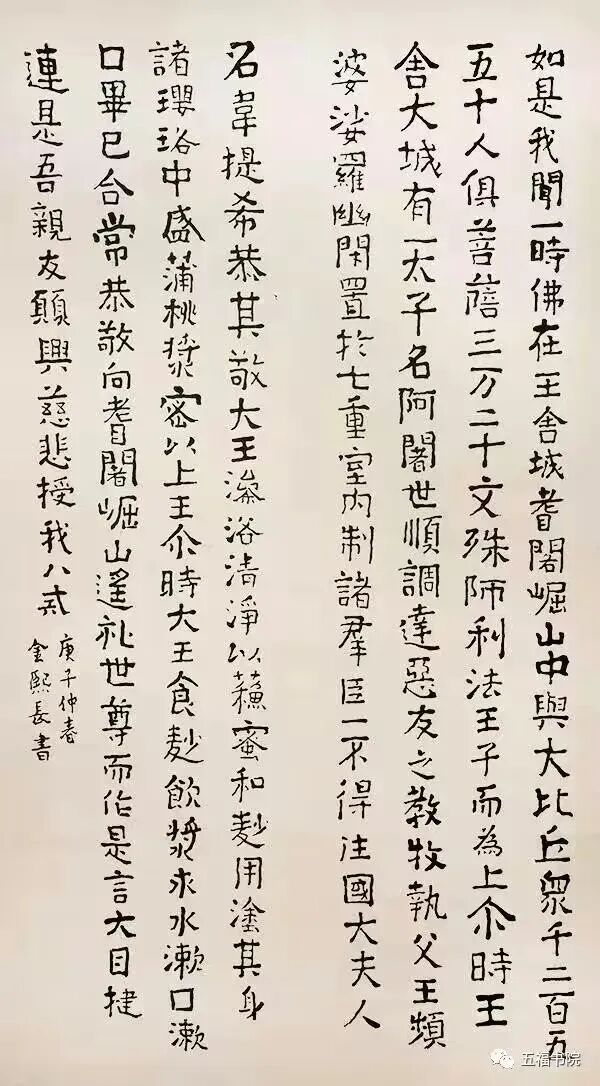 如是我聞一時佛在王舍城耆闍崛山中與大比丘眾千二百五
五十人俱菩薩三万二十文殊師利法王子而為上尒時王
舍大城有一太子名阿闍世順調達惡友之教牧執父王頻
婆娑羅幽閉置於七重室内制諸羣臣一不得往國大夫人
名韋提希恭其敬大王澡浴清淨以蘓蜜和麨用塗其身
諸瓔珞中盛蒲桃漿密以上王尒時大王食麨飲漿求水漱口漱
口畢已合常恭敬向耆闍崛山遙礼世尊而作是言大目揵
連是吾親友願興慈悲授我八戒
庚子仲春
金熙長書
五福书院